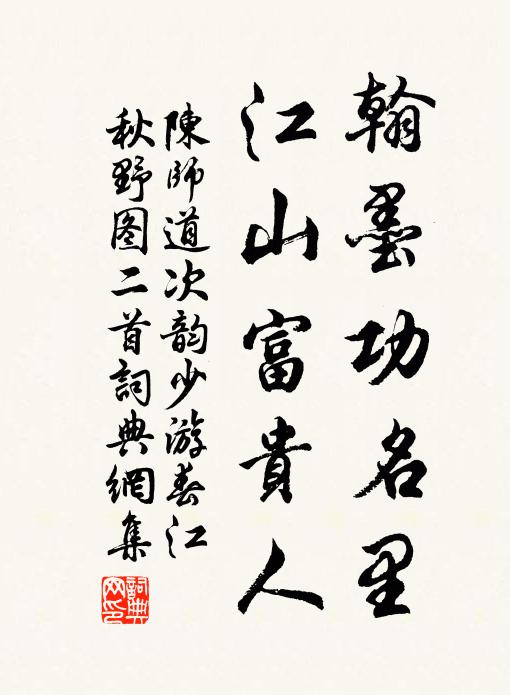 翰墨功名里
江山富貴人
陳師道次韵少游春江
秋野图二首詞典網集
詞典網印